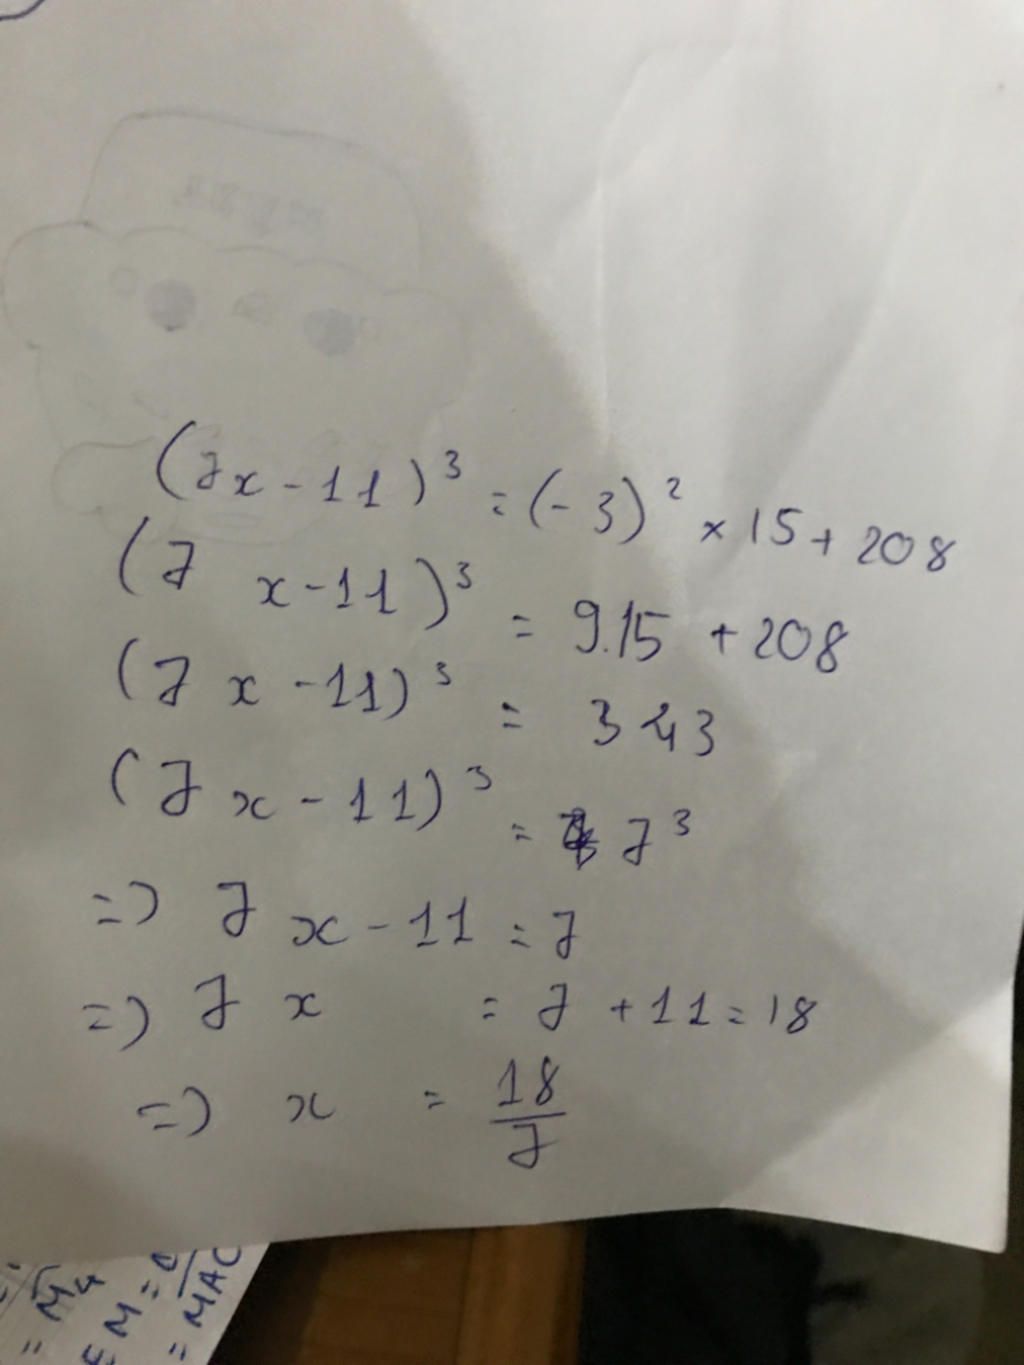 (7x-11)³ = (-3)² × 15 + 208
(7 x-11)³ = 9.15 + 208
(7 x -11)³ = 343
(7 x - 11)³ = 7³
=> 7 x - 11 = 7
=> 7 x = 7 + 11 = 18
=> x = 18/7
= M
M =
= MAC